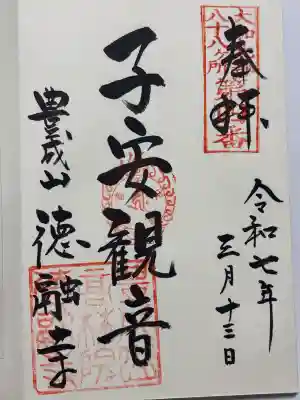 奉拝
大和
八十八ヶ所
番
令和七年
三月十三日
子安観音
豊成山 徳融寺